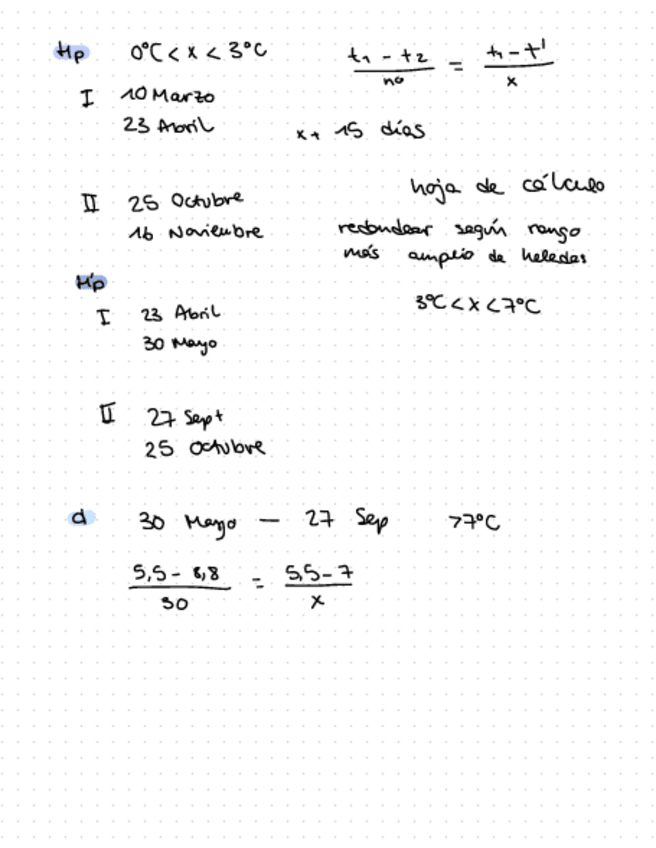 Hp 0°C < x < 3°C
t1 - t2 / nº = t1 - t' / x
I 10 Marzo
23 Abril
x + 15 días
II 25 Octubre
16 Noviembre
hoja de cálculo
redondear según rango
más amplio de heladas
H'p
3°C < x < 7°C
I 23 Abril
30 Mayo
II 27 Sept
25 Octubre
d 30 Mayo — 27 Sep >7°C
5,5 - 8,8 / 30 = 5,5 - 7 / x